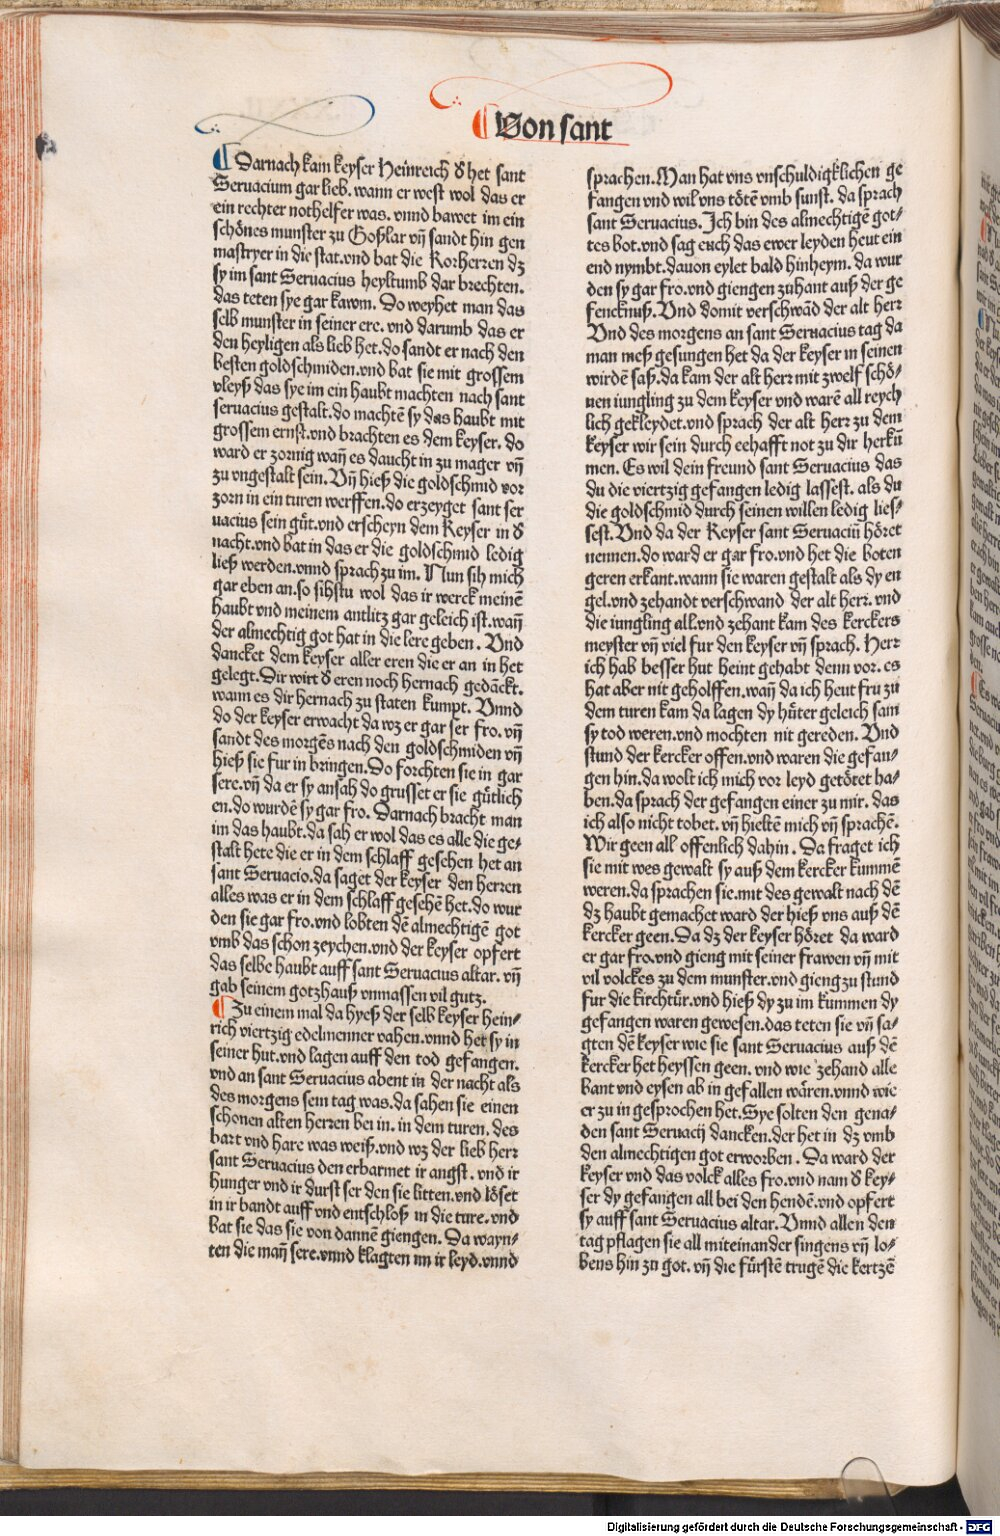 Von sant
Darnach kam keyser Heinreich ð het sant
Seruacium gar lieb. wann er west wol das er
ein rechter nothelfer was. vnnd bawet im ein
schönes munster zu Goßlar vñ sandt hin gen
mastryer in die stat. vnd bat die Korherren dz
sy im sant Seruacius heyltumb dar brechten.
das teten sye gar kawm. Do weyhet man das
selb munster in seiner ere. vnd darumb das er
den heyligen als lieb het. do sandt er nach den
besten goldschmiden. vnd bat sie mit grossem
vleyß das sye im ein haubt machten nach sant
seruacius gestalt. do machtē sy das haubt mit
grossem ernst. vnd brachten es dem keyser. do
ward er zornig wañ es daucht in zu mager vñ
zu vngestalt sein. Vñ hieß die goldschmid vor
zorn in ein turen werffen. do erzeyget sant ser
uacius sein gůt. vnd erscheyn dem Keyser in ð
nacht. vnd bat in das er die goldschmid ledig
ließ werden. vnnd sprach zu im. Nun sih mich
gar eben an. so sihstu wol das ir werck meinē
haubt vnd meinem antlitz gar geleich ist. wañ
der almechtig got hat in die lere geben. Vnd
dancket dem keyser aller eren die er an in het
gelegt. Dir wirt ð eren noch hernach gedāckt.
wann es dir hernach zu staten kumpt. Vnnd
do der keyser erwacht da wz er gar ser fro. vñ
sandt des morgēs nach den goldschmiden vñ
hieß sie fur in bringen. Do forchten sie in gar
sere. vñ da er sy ansah do grusset er sie gůtlich
en. do wurdē sy gar fro. Darnach bracht man
im das haubt. da sah er wol das es alle die ge-
stalt hete die er in dem schlaff gesehen het an
sant Seruacio. da saget der keyser den herren
alles was er in dem schlaff gesehē het. do wur
den sie gar fro. vnd lobten dē almechtigē got
vmb das schon zeychen. vnd der keyser opfert
das selbe haubt auff sant Seruacius altar. vñ
gab seinem gotzhauß vnmassen vil gutz.
Zu einem mal da hyeß der selb keyser hein-
rich viertzig edelmenner vahen. vnnd het sy in
seiner hut. vnd lagen auff den tod gefangen.
vnd an sant Seruacius abent in der nacht als
des morgens sein tag was. da sahen sie einen
schonen alten herren bei in. in dem turen. des
bart vnd hare was weiß. vnd wz der lieb herr
sant Seruacius den erbarmet ir angst. vnd ir
hunger vnd ir durst ser den sie litten. vnd löset
in ir bandt auff vnd entschloß in die ture. vnd
bat sie das sie von dannē giengen. Da wayn-
ten die mañ sere. vnnd klagten im ir leyd. vnnd
sprachen. Man hat vns vnschuldigklichen ge
fangen vnd wil vns tötē vmb sunst. da sprach
sant Seruacius. Ich bin des almechtigē got-
tes bot. vnd sag euch das ewer leyden heut ein
end nymbt. dauon eylet bald hinheym. da wur
den sy gar fro. vnd giengen zuhant auß der ge
fencknuß. Vnd domit verschwād der alt herr
Vnd des morgens an sant Seruacius tag da
man meß gesungen het da der keyser in seinen
wirdē saß. da kam der alt herr mit zwelf schö-
nen iungling zu dem keyser vnd warē all reych
lich gekleydet. vnd sprach der alt herr zu dem
keyser wir sein durch eehafft not zu dir herkū
men. Es wil dein freund sant Seruacius das
du die viertzig gefangen ledig lassest. als du
die goldschmid durch seinen willen ledig lies-
sest. Vnd da der Keyser sant Seruaciū höret
nennen. do ward er gar fro. vnd het die boten
geren erkant. wann sie waren gestalt als dy en
gel. vnd zehandt verschwand der alt herr. vnd
die iungling all. vnd zehant kam des kerckers
meyster vñ viel fur den keyser vñ sprach. Herr
ich hab besser hut heint gehabt denn vor. es
hat aber nit geholffen. wañ da ich heut fru zu
dem turen kam da lagen dy hůter geleich sam
sy tod weren. vnd mochten nit gereden. Vnd
stund der kercker offen. vnd waren die gefan-
gen hin. da wolt ich mich vor leyd getötet ha-
ben. da sprach der gefangen einer zu mir. das
ich also nicht tobet. vñ hieltē mich vñ sprachē.
Wir geen all offenlich dahin. Da fraget ich
sie mit wes gewalt sy auß dem kercker kummē
weren. da sprachen sie. mit des gewalt nach dē
dz haubt gemachet ward der hieß vns auß dē
kercker geen. Da dz der keyser höret da ward
er gar fro. vnd gieng mit seiner frawen vñ mit
vil volckes zu dem munster. vnd gieng zu stund
fur die kirchtür. vnd hieß dy zu im kummen dy
gefangen waren gewesen. das teten sie vñ sa-
gten dē keyser wie sie sant Seruacius auß dē
kercker het heyssen geen. vnd wie zehand alle
bant vnd eysen ab in gefallen wären. vnnd wie
er zu in gesprochen het. Sye solten den gena-
den sant Seruacij dancken. der het in dz vmb
den almechtigen got erworben. Da ward der
keyser vnd das volck alles fro. vnd nam ð key-
ser dy gefangen all bei den hendē. vnd opfert
sy auff sant Seruacius altar. Vnnd allen den
tag pflagen sie all miteinander singens vñ lo-
bens hin zu got. vñ die fürstē trugē die kertzē
Digitalisierung gefördert durch die Deutsche Forschungsgemeinschaft - DFG